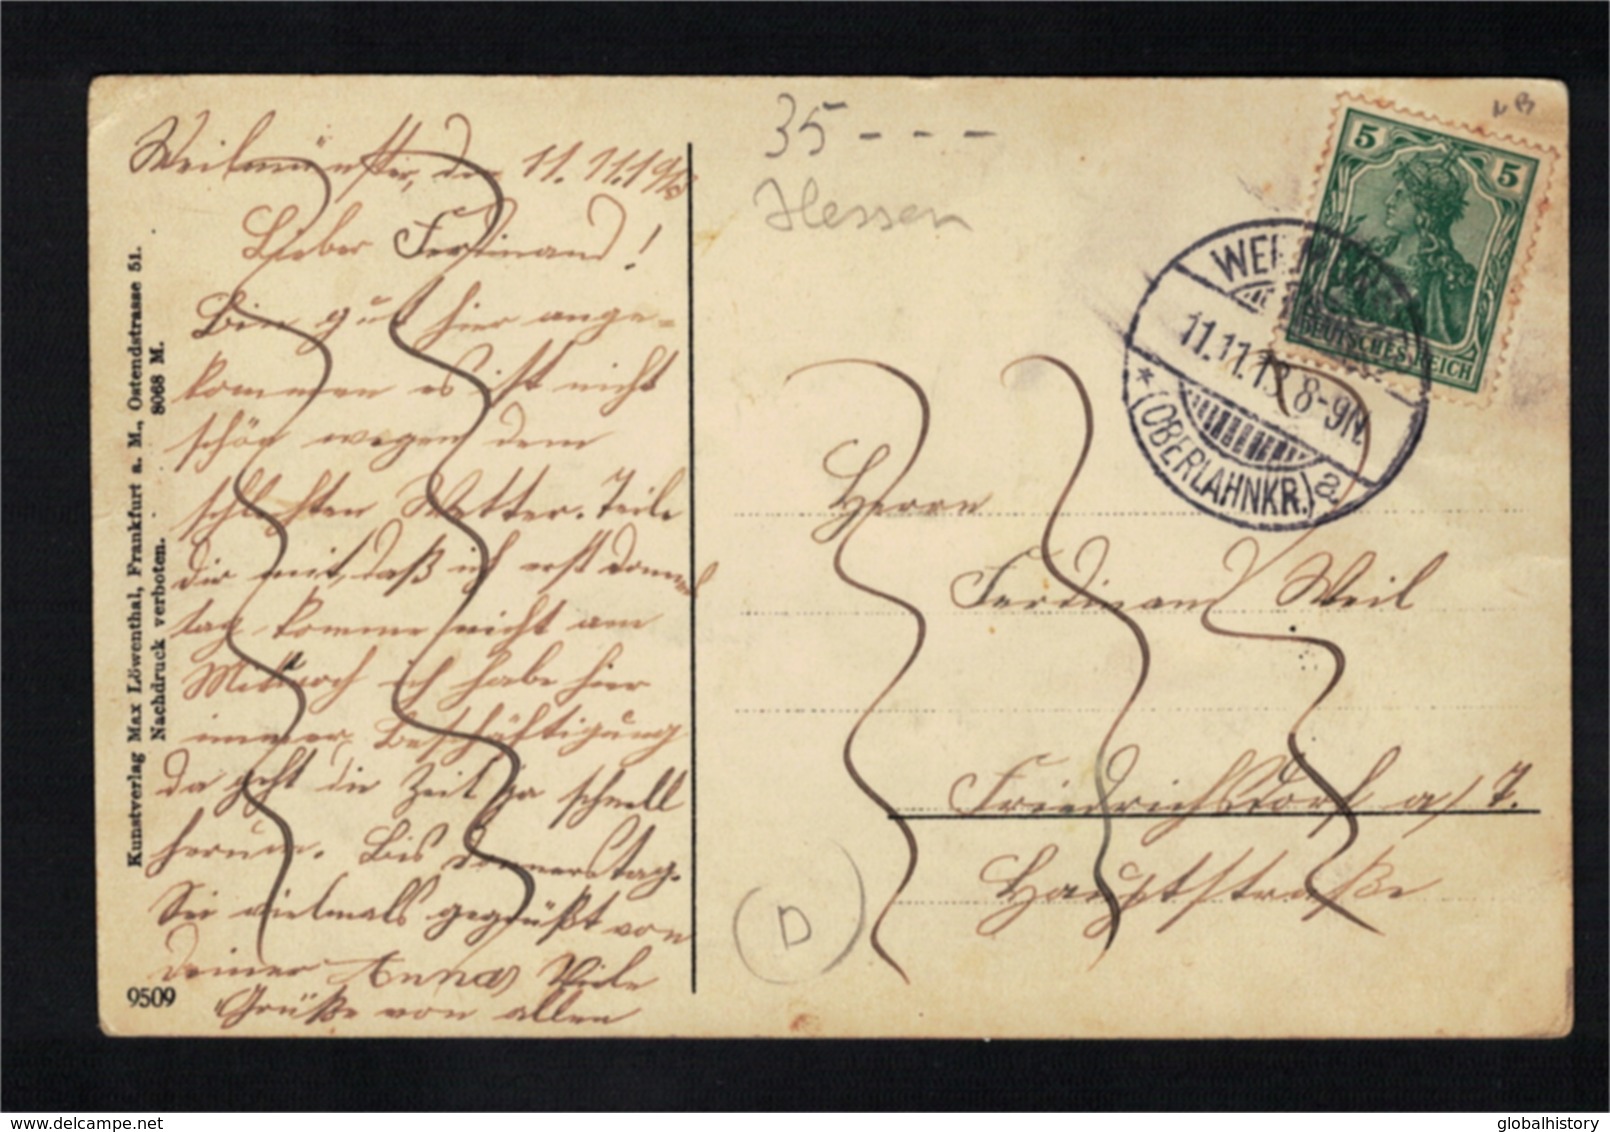 Weilmünster, den 11.11.1913
Lieber Ferdinand!
Bin gut hier ange-
kommen es ist nicht
schön wegen dem
schlechten Wetter. Teile
dir mit, daß ich erst Donners
tag komme nicht am
Mittwoch ich habe hier
immer Beschäftigung
da geht die Zeit ja schnell
herum. Bis Donnerstag.
Sei vielmals gegrüßt von
deiner Anna Viele
Grüße von allen
Kunstverlag Max Löwenthal, Frankfurt a. M., Ostendstrasse 51.
Nachdruck verboten. 8068 M.
9509
35 - - -
Hessen
D
5 5
DEUTSCHES REICH
11.11.13 8-9N.
* (OBERLAHNKR.) a
Herrn
Ferdinand Weil
Friedrichsdorf a/T.
Hauptstraße
delcampe.net
globalhistory